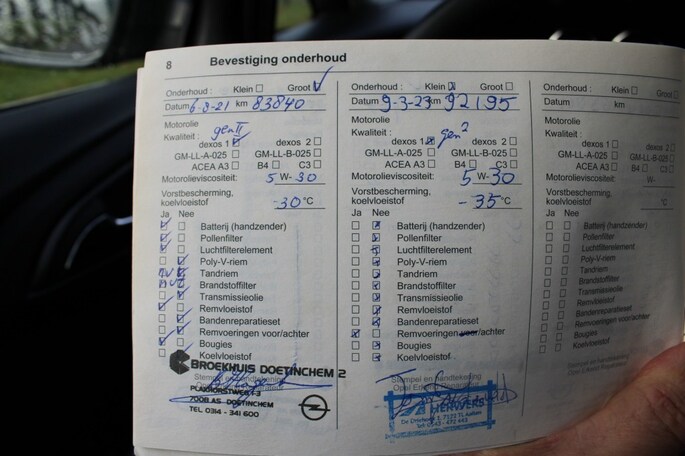 8 Bevestiging onderhoud
Onderhoud : Klein Groot
Datum 6-8-21 km 83840
Motorolie
Kwaliteit : gen II
dexos 1 dexos 2
GM-LL-A-025 GM-LL-B-025
ACEA A3 B4 C3
Motorolieviscositeit: 5 W- 30
Vorstbescherming,
koelvloeistof -30 °C
Ja Nee
Batterij (handzender)
Pollenfilter
Luchtfilterelement
Poly-V-riem
Tandriem
Brandstoffilter
Transmissieolie
Remvloeistof
Bandenreparatieset
Remvoeringen voor/achter
Bougies
Koelvloeistof
BROEKHUIS DOETINCHEM 2
Stempel en handtekening
7008 AS DOETINCHEM
TEL 0314 - 341 600
Onderhoud : Klein Groot
Datum 9-3-23 km 92195
Motorolie
Kwaliteit : gen 2
dexos 1 dexos 2
GM-LL-A-025 GM-LL-B-025
ACEA A3 B4 C3
Motorolieviscositeit: 5 W- 30
Vorstbescherming,
koelvloeistof -35 °C
Ja Nee
Batterij (handzender)
Pollenfilter
Luchtfilterelement
Poly-V-riem
Tandriem
Brandstoffilter
Transmissieolie
Remvloeistof
Bandenreparatieset
Remvoeringen voor/achter
Bougies
Koelvloeistof
Stempel en handtekening
HERWERS
Onderhoud : Klein Groot
Datum km
Motorolie
Kwaliteit :
dexos 1 dexos 2
GM-LL-A-025 GM-LL-B-025
ACEA A3 B4 C3
Motorolieviscositeit: W-
Vorstbescherming,
koelvloeistof °C
Ja Nee
Batterij (handzender)
Pollenfilter
Luchtfilterelement
Poly-V-riem
Tandriem
Brandstoffilter
Transmissieolie
Remvloeistof
Bandenreparatieset
Remvoeringen voor/achter
Bougies
Koelvloeistof
Stempel en handtekening